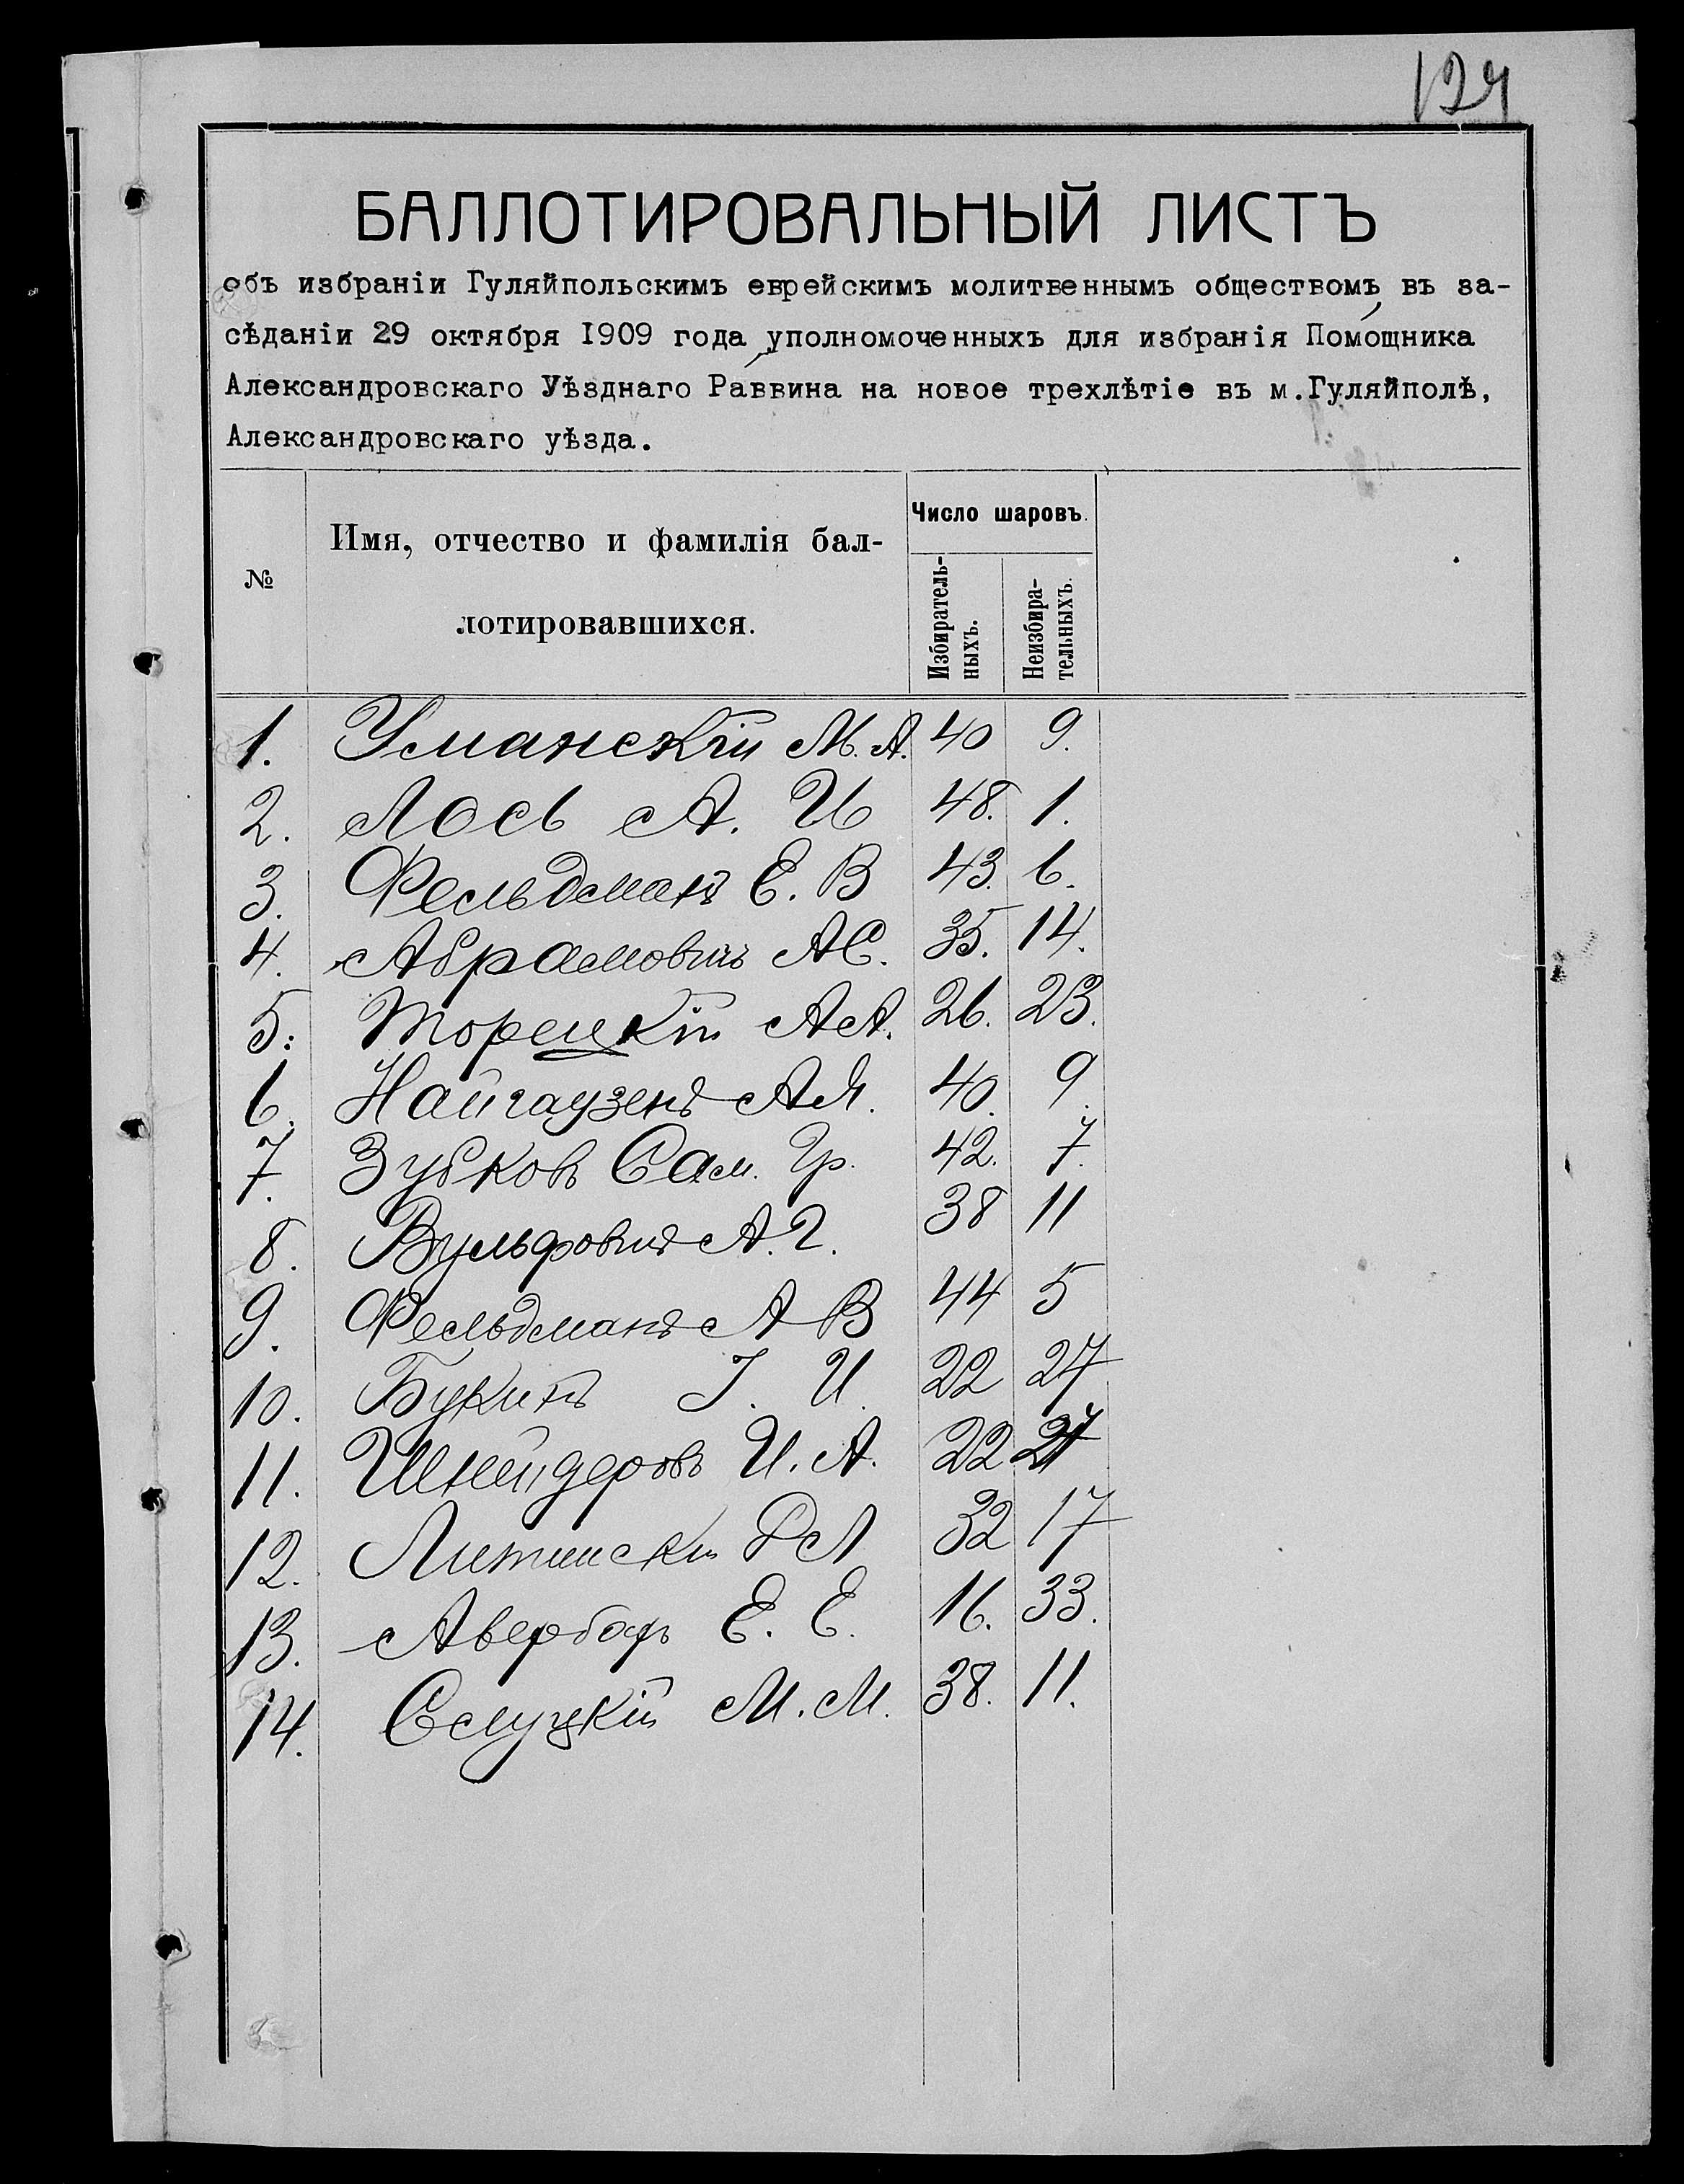 124
БАЛЛОТИРОВАЛЬНЫЙ ЛИСТЪ
объ избраніи Гуляйпольскимъ еврейскимъ молитвеннымъ обществомъ, въ за-
сѣданіи 29 октября 1909 года, уполномоченныхъ для избранія Помощника
Александровскаго Уѣзднаго Раввина на новое трехлѣтіе въ м.Гуляйполѣ,
Александровскаго уѣзда.
№ Имя, отчество и фамилія бал-
лотировавшихся.
Число шаровъ.
Избиратель-
ныхъ.
Неизбира-
тельныхъ.
1. Уманскій М. А. 40 9.
2. Лось А. И 48. 1.
3. Фельдманъ Е. В 43. 6.
4. Абрамовичъ А С. 35. 14.
5. Торецкій А А. 26. 23.
6. Найгаузенъ А 40. 9.
7. Зубковъ Сам. Гр. 42. 7.
8. Вульфовичъ А. Г. 38 11
9. Фельдманъ А В 44 5
10. Букинъ І. И. 22 27
11. Шнейдеровъ И. А. 22 27
12. Литинскій Л 32 17
13. Авербахъ Е. Е. 16. 33.
14. Слуцкій М. М. 38. 11.